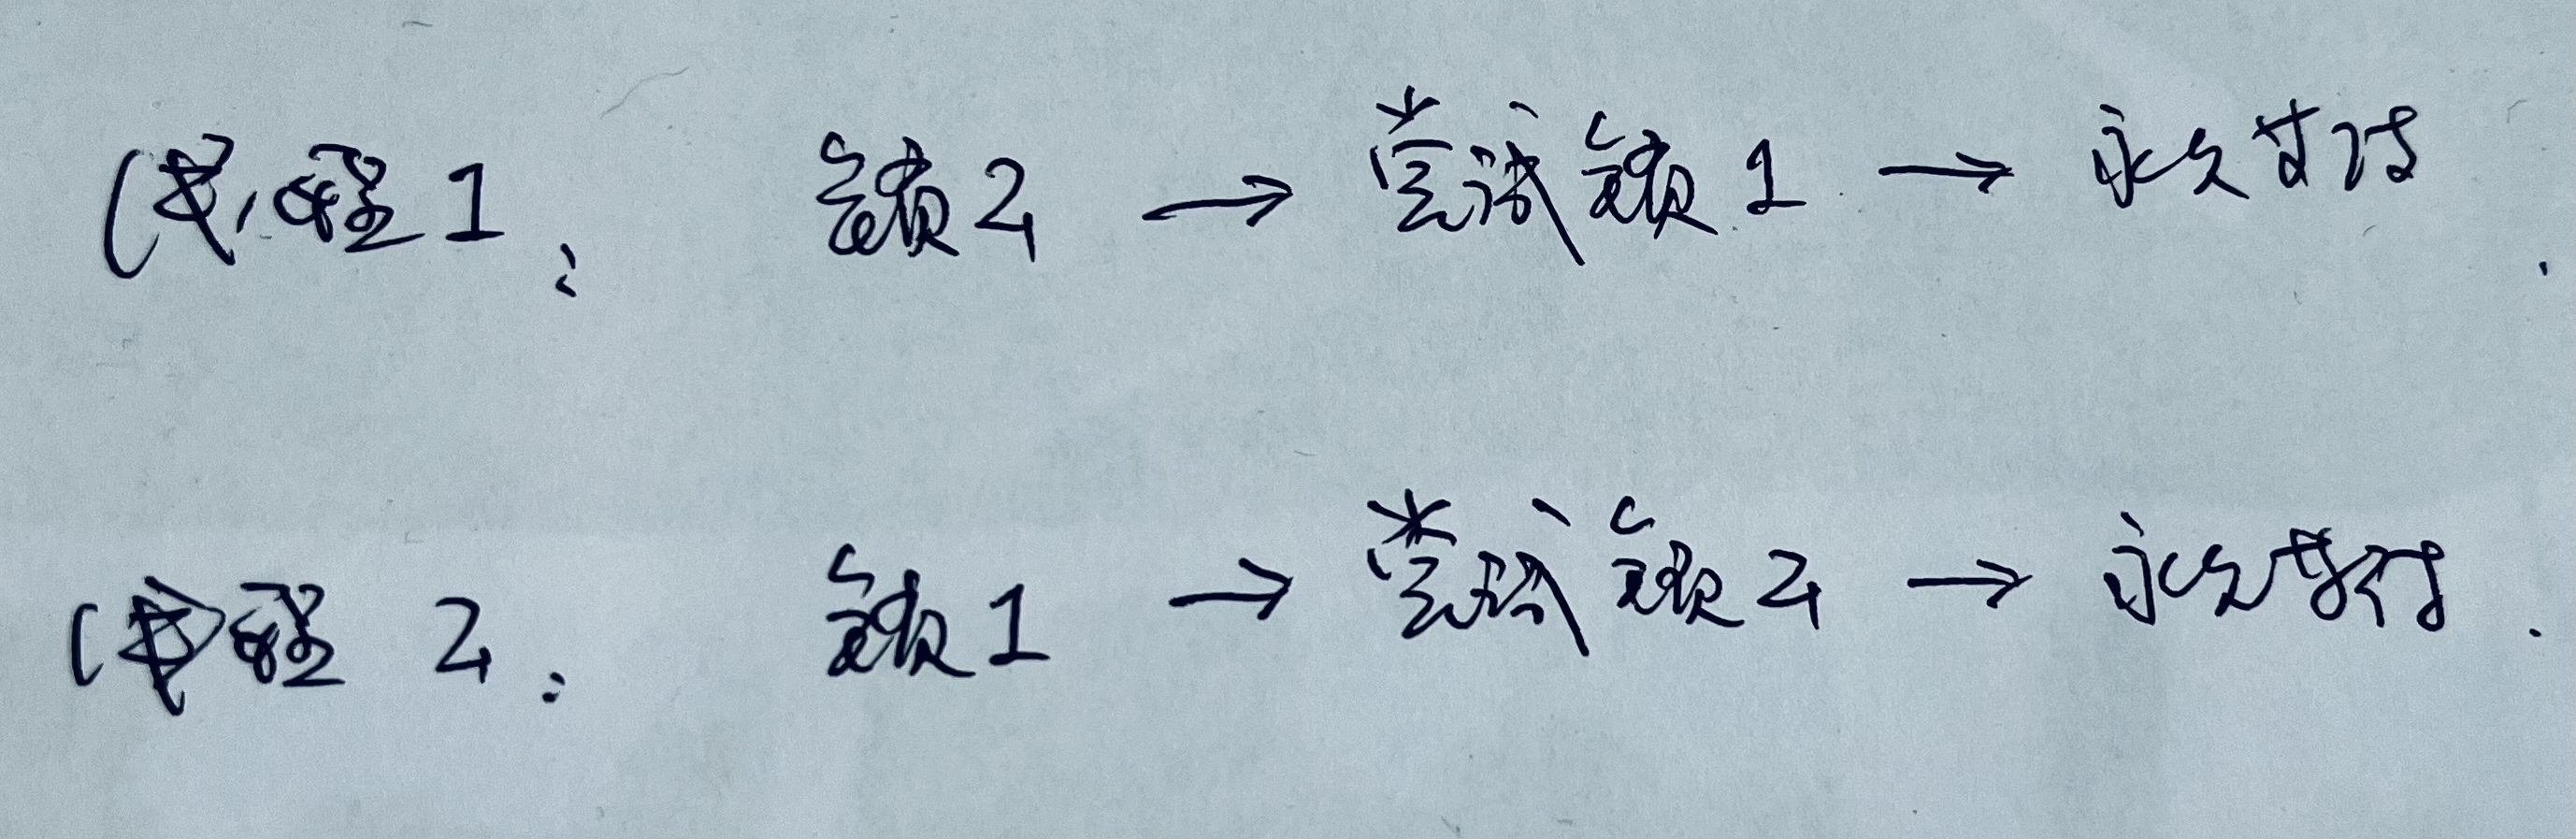 线程1: 锁2 → 尝试锁1 → 永久等待.
线程2: 锁1 → 尝试锁2 → 永久等待.